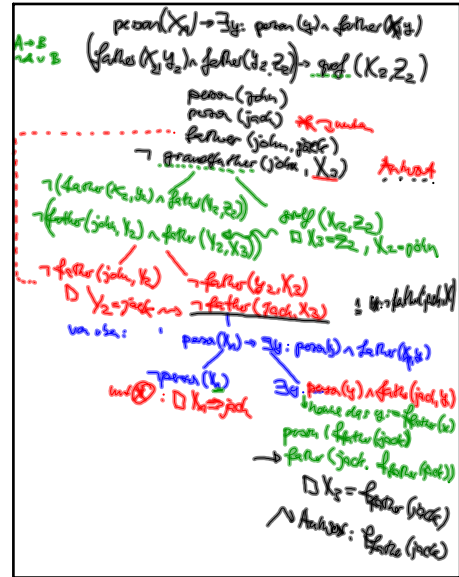 person(X₁) → ∃y: person(y) ∧ father(X₁,y)
A → B
¬A ∨ B
(father(X₂,Y₂) ∧ father(Y₂,Z₂)) → gref(X₂,Z₂)
person(john)
person(jack)
father(john, jack)
¬ grandfather(john, X₃)
Antwort
¬(father(X₂,Y₂) ∧ father(Y₂,Z₂))
¬(father(john, Y₂) ∧ father(Y₂,X₃))
gref(X₂,Z₂)
□ X₃=Z₂, X₂=john
¬father(john, Y₂)
¬father(Y₂,X₃)
□ Y₂=jack
¬father(jack, X₃)
von oben:
person(X₁) → ∃y: person(y) ∧ father(X₁,y)
¬person(X₁)
∃y: person(y) ∧ father(jack,y)
□ X₁ = jack
nenne das y := f_father(x)
person(f_father(jack))
→ father(jack, f_father(jack))
□ X₃ = f_father(jack)
Antwort: f_father(jack)